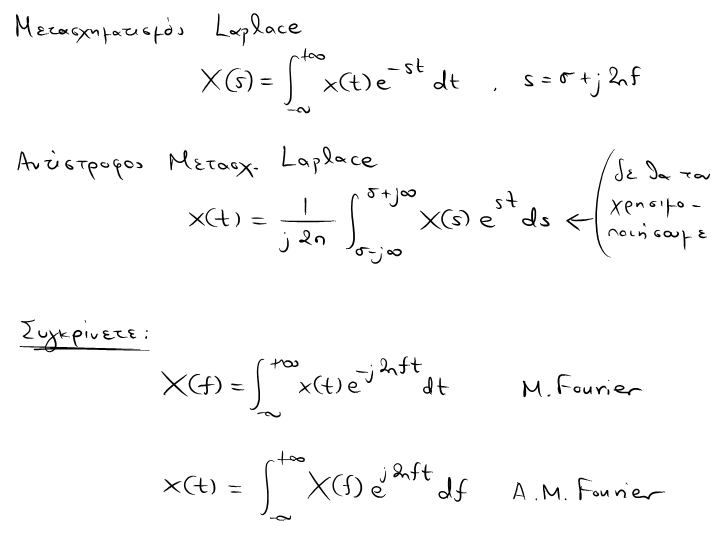 Μετασχηματισμός Laplace
X(s) = ∫_{-∞}^{+∞} x(t) e^{-st} dt , s = σ + j2πf
Αντίστροφος Μετασχ. Laplace
x(t) = \frac{1}{j2π} ∫_{σ-j∞}^{σ+j∞} X(s) e^{st} ds ← (δε θα τον
χρησιμο-
ποιήσουμε
Συγκρίνετε:
X(f) = ∫_{-∞}^{+∞} x(t) e^{-j2πft} dt Μ. Fourier
x(t) = ∫_{-∞}^{+∞} X(f) e^{j2πft} df Α.Μ. Fourier